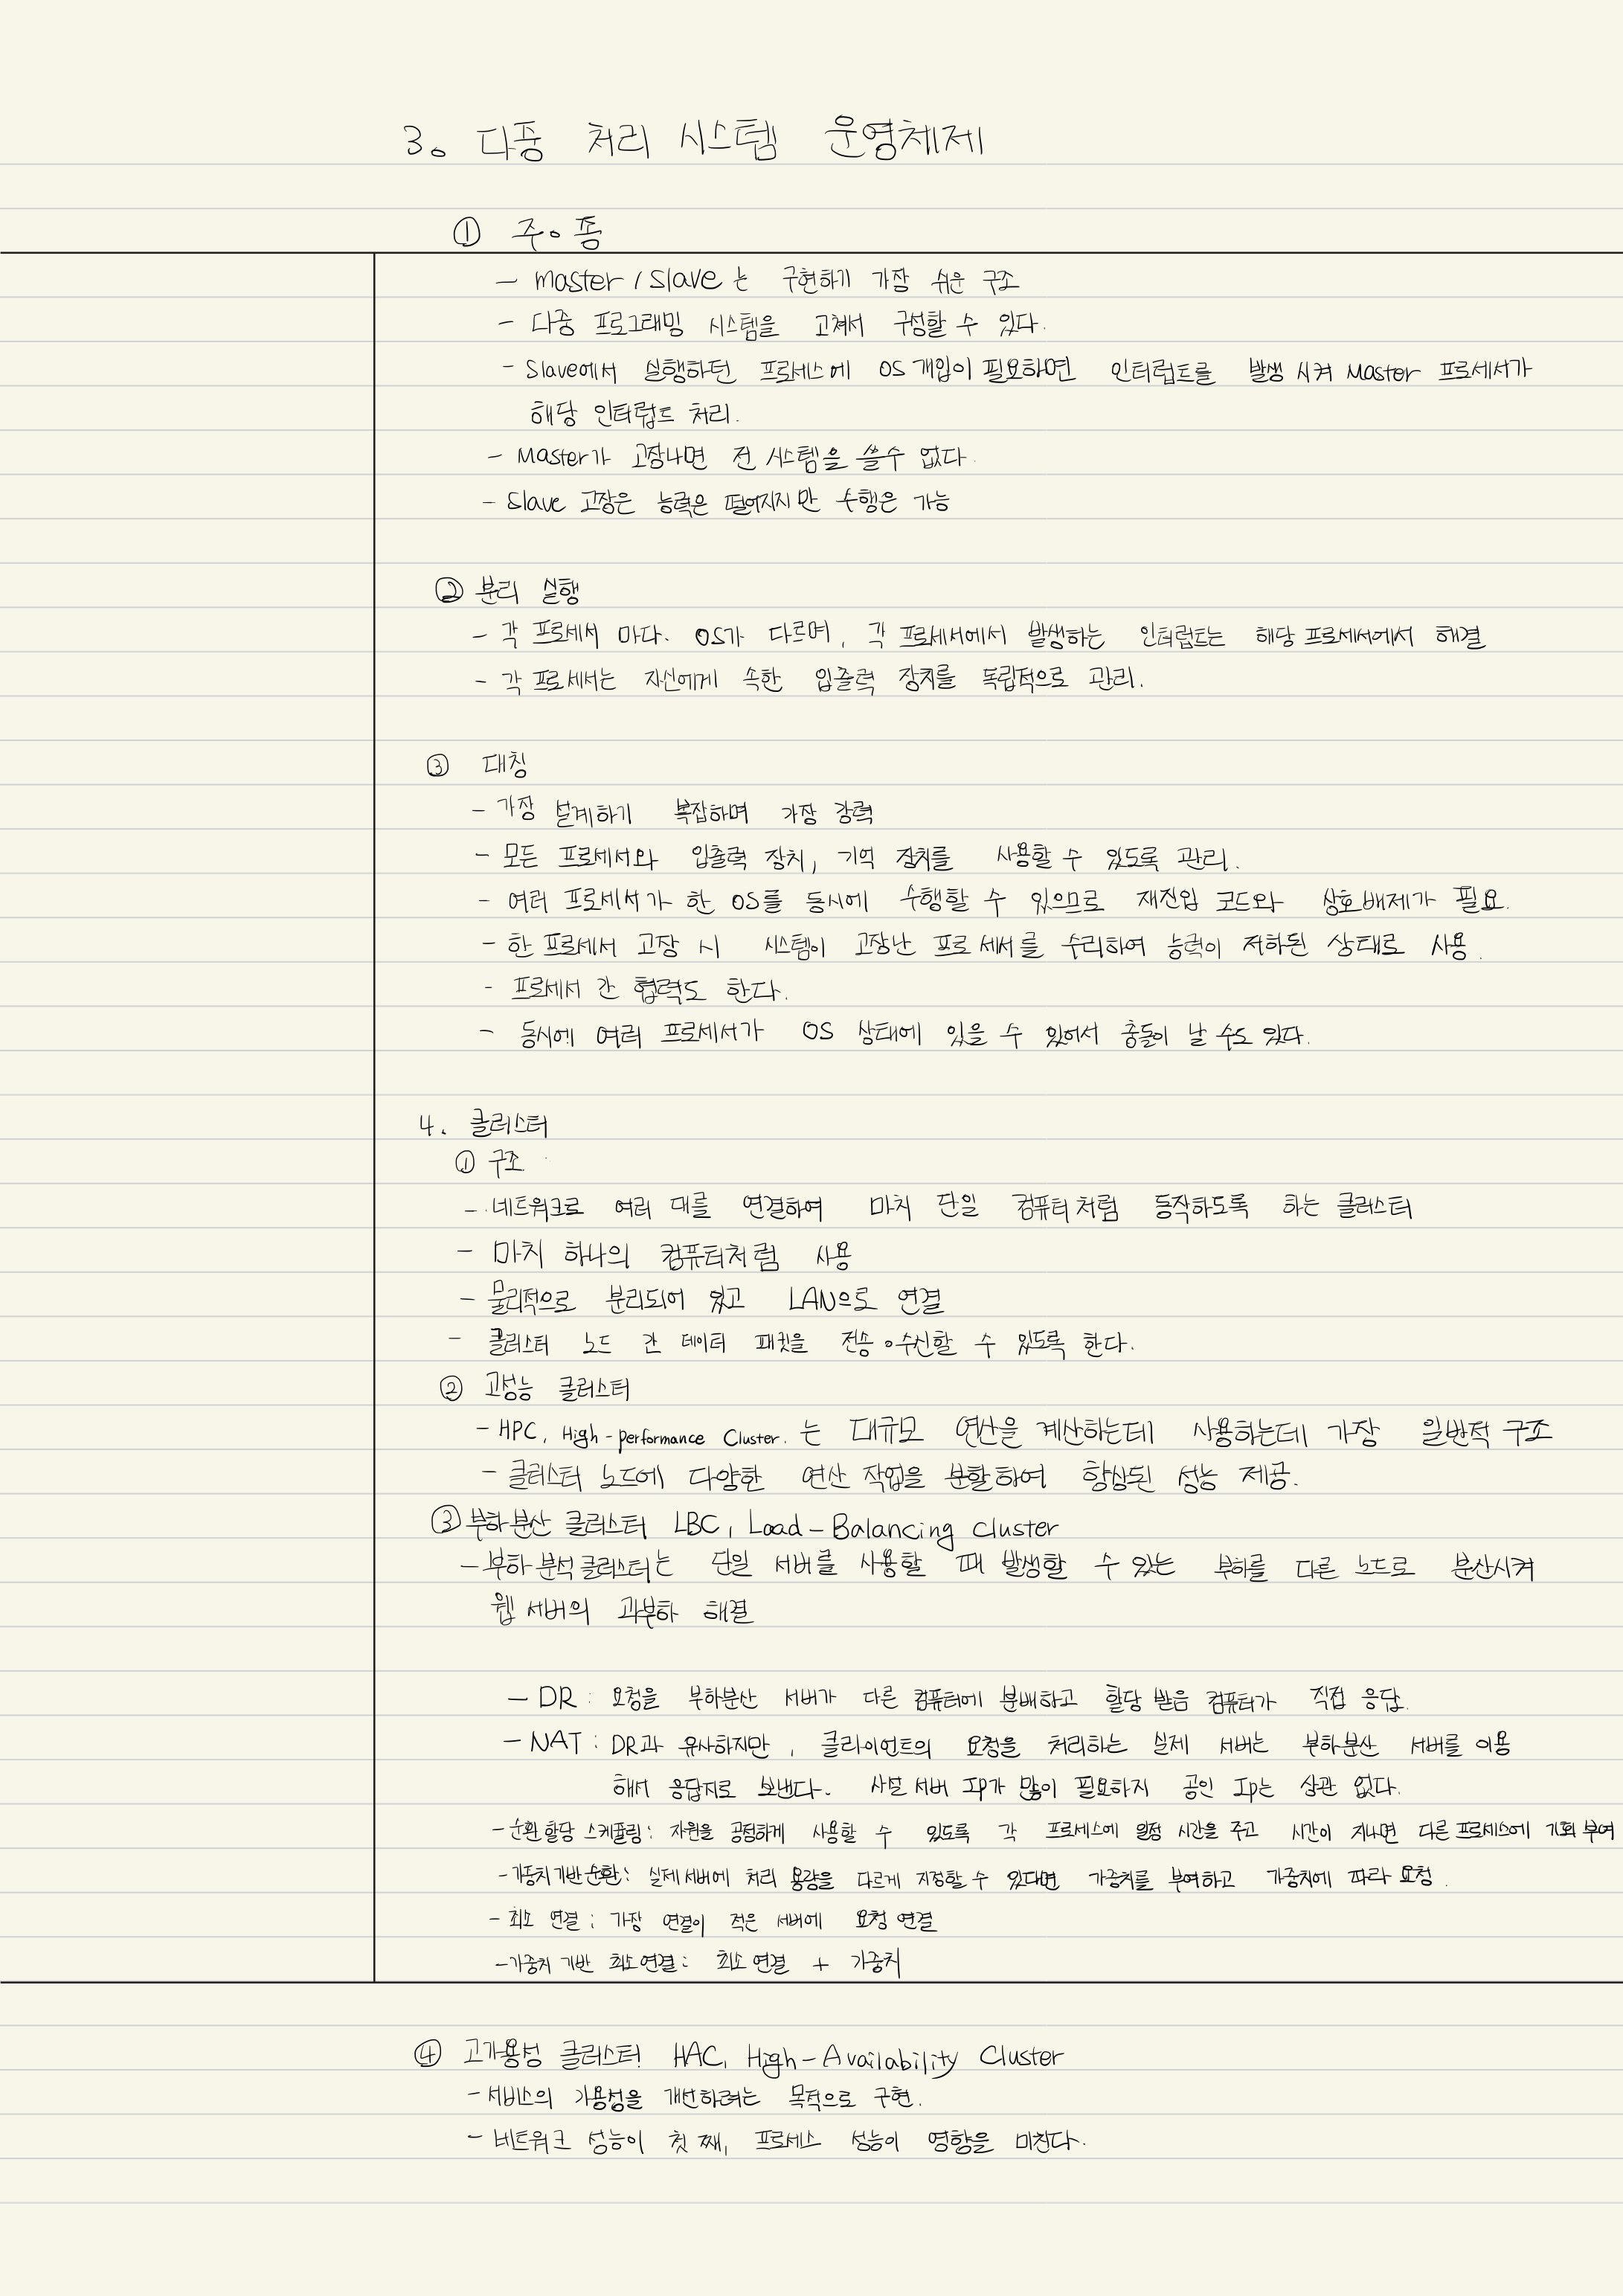 3. 다중 처리 시스템 운영체제
① 주·종
- master / Slave는 구현하기 가장 쉬운 구조
- 다중 프로그래밍 시스템을 고쳐서 구성할 수 있다.
- Slave에서 실행하던 프로세스에 OS 개입이 필요하면 인터럽트를 발생 시켜 Master 프로세서가
해당 인터럽트 처리.
- Master가 고장나면 전 시스템을 쓸수 없다.
- Slave 고장은 능력은 떨어지지만 수행은 가능
② 분리 실행
- 각 프로세서 마다. OS가 다르며, 각 프로세서에서 발생하는 인터럽트는 해당 프로세서에서 해결
- 각 프로세서는 자신에게 속한 입출력 장치를 독립적으로 관리.
③ 대칭
- 가장 설계하기 복잡하며 가장 강력
- 모든 프로세서와 입출력 장치, 기억 장치를 사용할 수 있도록 관리.
- 여러 프로세서가 한 OS를 동시에 수행할 수 있으므로 재진입 코드와 상호배제가 필요.
- 한 프로세서 고장 시 시스템이 고장난 프로세서를 수리하여 능력이 저하된 상태로 사용.
- 프로세서 간 협력도 한다.
- 동시에 여러 프로세서가 OS 상태에 있을 수 있어서 충돌이 날 수도 있다.
4. 클러스터
① 구조
- 네트워크로 여러 대를 연결하여 마치 단일 컴퓨터처럼 동작하도록 하는 클러스터
- 마치 하나의 컴퓨터처럼 사용
- 물리적으로 분리되어 있고 LAN으로 연결
- 클러스터 노드 간 데이터 패킷을 전송·수신할 수 있도록 한다.
② 고성능 클러스터
- HPC, High-performance Cluster. 는 대규모 연산을 계산하는데 사용하는데 가장 일반적 구조
- 클러스터 노드에 다양한 연산 작업을 분할하여 향상된 성능 제공.
③ 부하분산 클러스터 LBC, Load-Balancing Cluster
- 부하 분석 클러스터는 단일 서버를 사용할 때 발생할 수 있는 부하를 다른 노드로 분산시켜
웹 서버의 과부하 해결
- DR : 요청을 부하분산 서버가 다른 컴퓨터에 분배하고 할당 받음 컴퓨터가 직접 응답.
- NAT : DR과 유사하지만, 클라이언트의 요청을 처리하는 실제 서버는 부하분산 서버를 이용
해서 응답지로 보낸다. 사설 서버 Ip가 많이 필요하지 공인 Ip는 상관 없다.
- 순환 할당 스케쥴링 : 자원을 공정하게 사용할 수 있도록 각 프로세스에 일정 시간을 주고 시간이 지나면 다른 프로세스에 기회 부여
- 가중치기반순환 : 실제 서버에 처리 용량을 다르게 지정할 수 있다면 가중치를 부여하고 가중치에 따라 요청.
- 최소 연결 : 가장 연결이 적은 서버에 요청 연결
- 가중치 기반 최소연결 : 최소 연결 + 가중치
④ 고가용성 클러스터 HAC, High-Availability Cluster
- 서비스의 가용성을 개선하려는 목적으로 구현.
- 네트워크 성능이 첫 째, 프로세스 성능이 영향을 미친다.